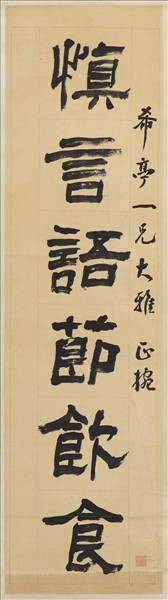 希亭一兄大雅正捥
慎言語節飲食